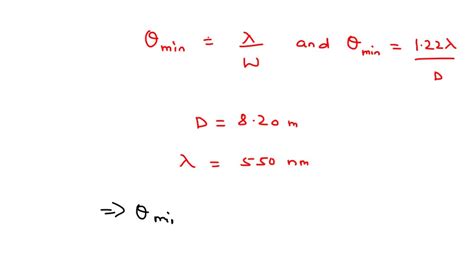 θmin = λ/W and θmin = 1.22λ/D
D = 8.20 m
λ = 550 nm
⇒ θmi